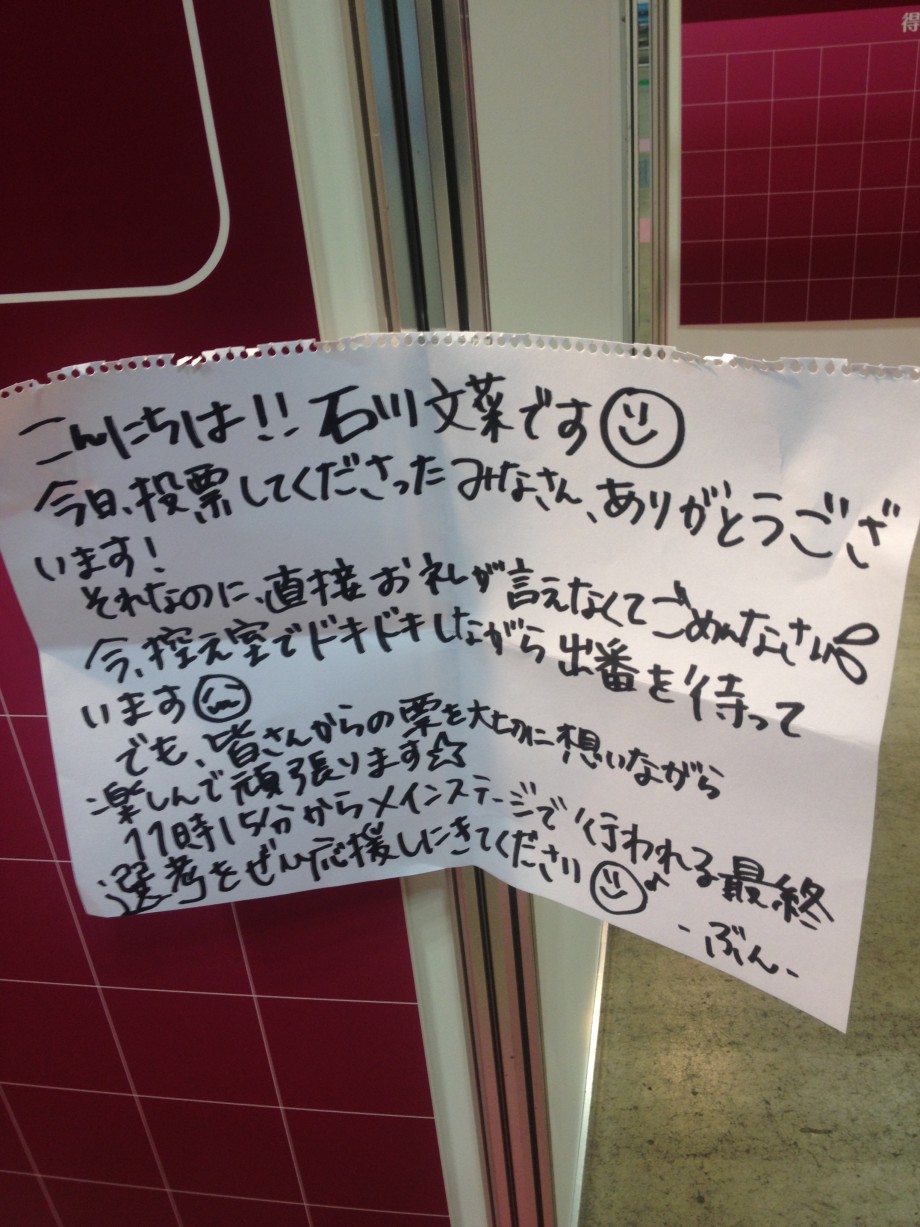 得
こんにちは!! 石川文菜です
今日、投票してくださったみなさん、ありがとうござ
います!
それなのに、直接お礼が言えなくてごめんなさい
今、控え室でドキドキしながら出番を待って
います
でも、皆さんからの票を大切に想いながら
楽しんで頑張ります☆
11時15分からメインステージで行われる最終
選考をぜひ応援しにきてください♪
-ぶん-